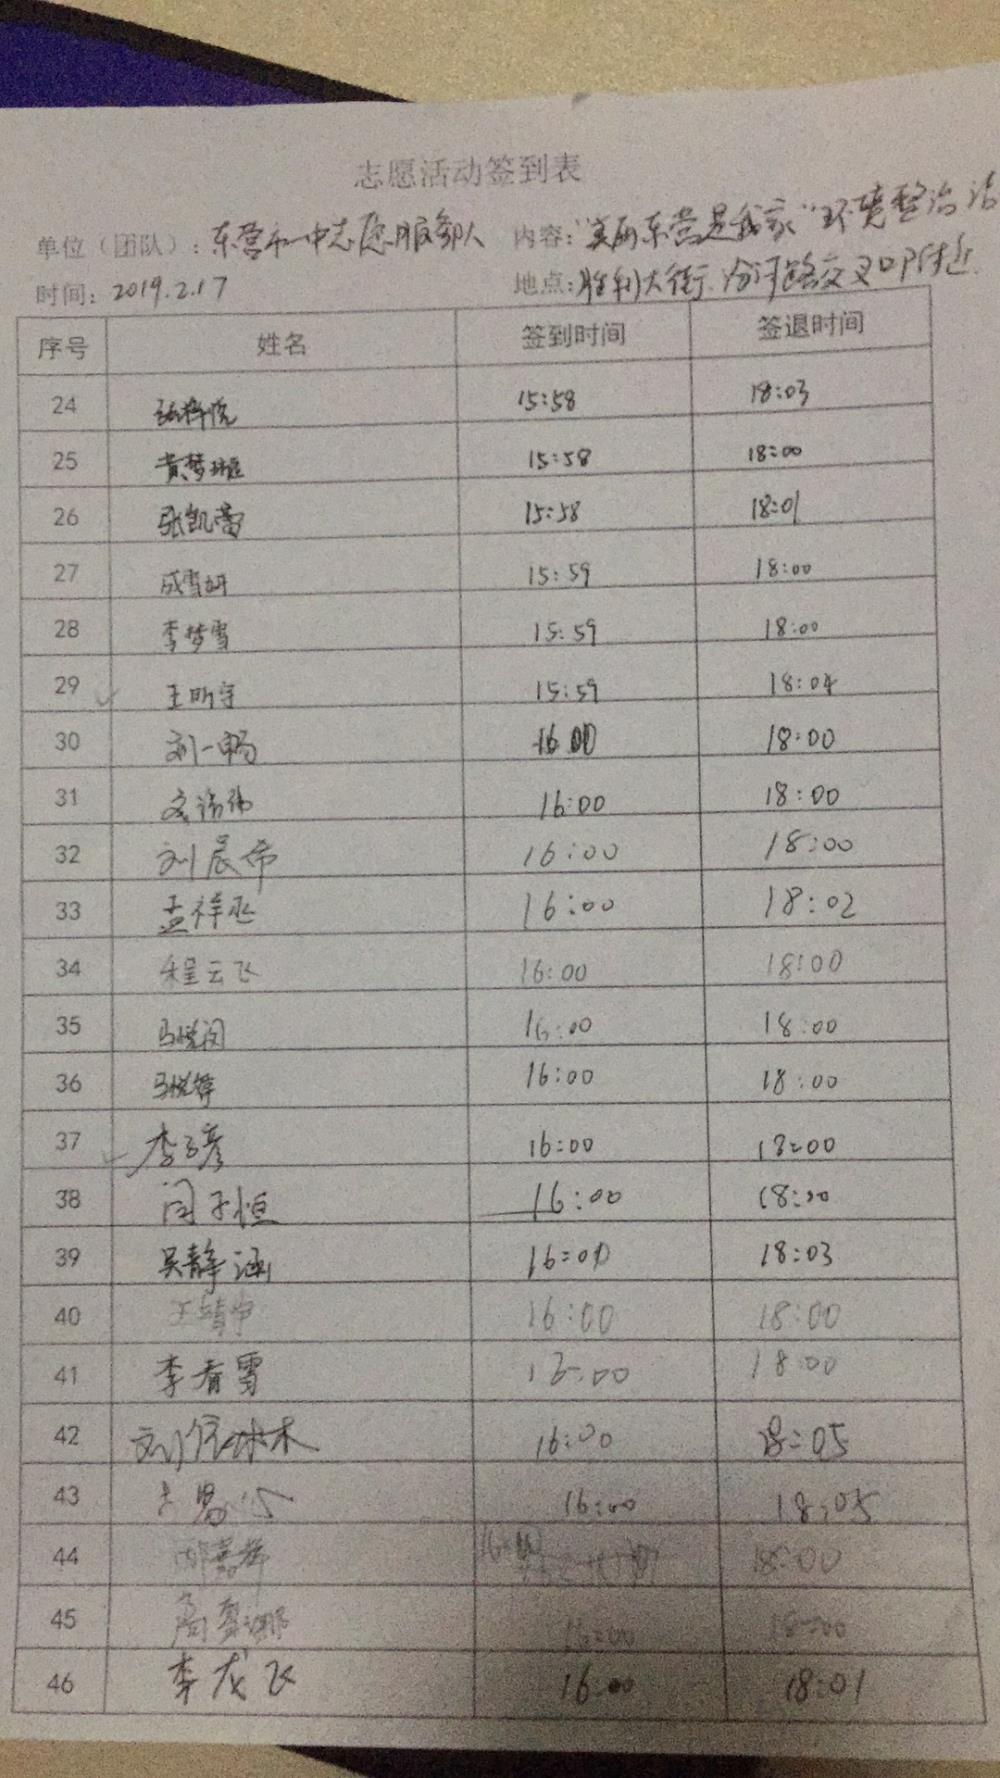 志愿活动签到表
单位（团队）：东营市一中志愿服务队 内容：“美丽东营是我家”环境整治活
时间：2019.2.17 地点：胜利大街 交叉口附近
序号 姓名 签到时间 签退时间
24 15:58 18:03
25 黄梦 15:58 18:00
26 张凯 15:58 18:01
27 成雪妍 15:59 18:00
28 李梦雪 15:59 18:00
29 王昕宇 15:59 18:04
30 刘一畅 16:00 18:00
31 16:00 18:00
32 刘晨希 16:00 18:00
33 孟祥丞 16:00 18:02
34 程云飞 16:00 18:00
35 马悦 16:00 18:00
36 马悦 16:00 18:00
37 李子彦 16:00 18:00
38 闫子恒 16:00 18:00
39 吴静涵 16:00 18:03
40 王靖 16:00 18:00
41 李春雪 18:00
42 刘 林 16:00 18:05
43 16:00 18:05
44 18:00
45 16:00 18:00
46 李龙飞 16:00 18:01